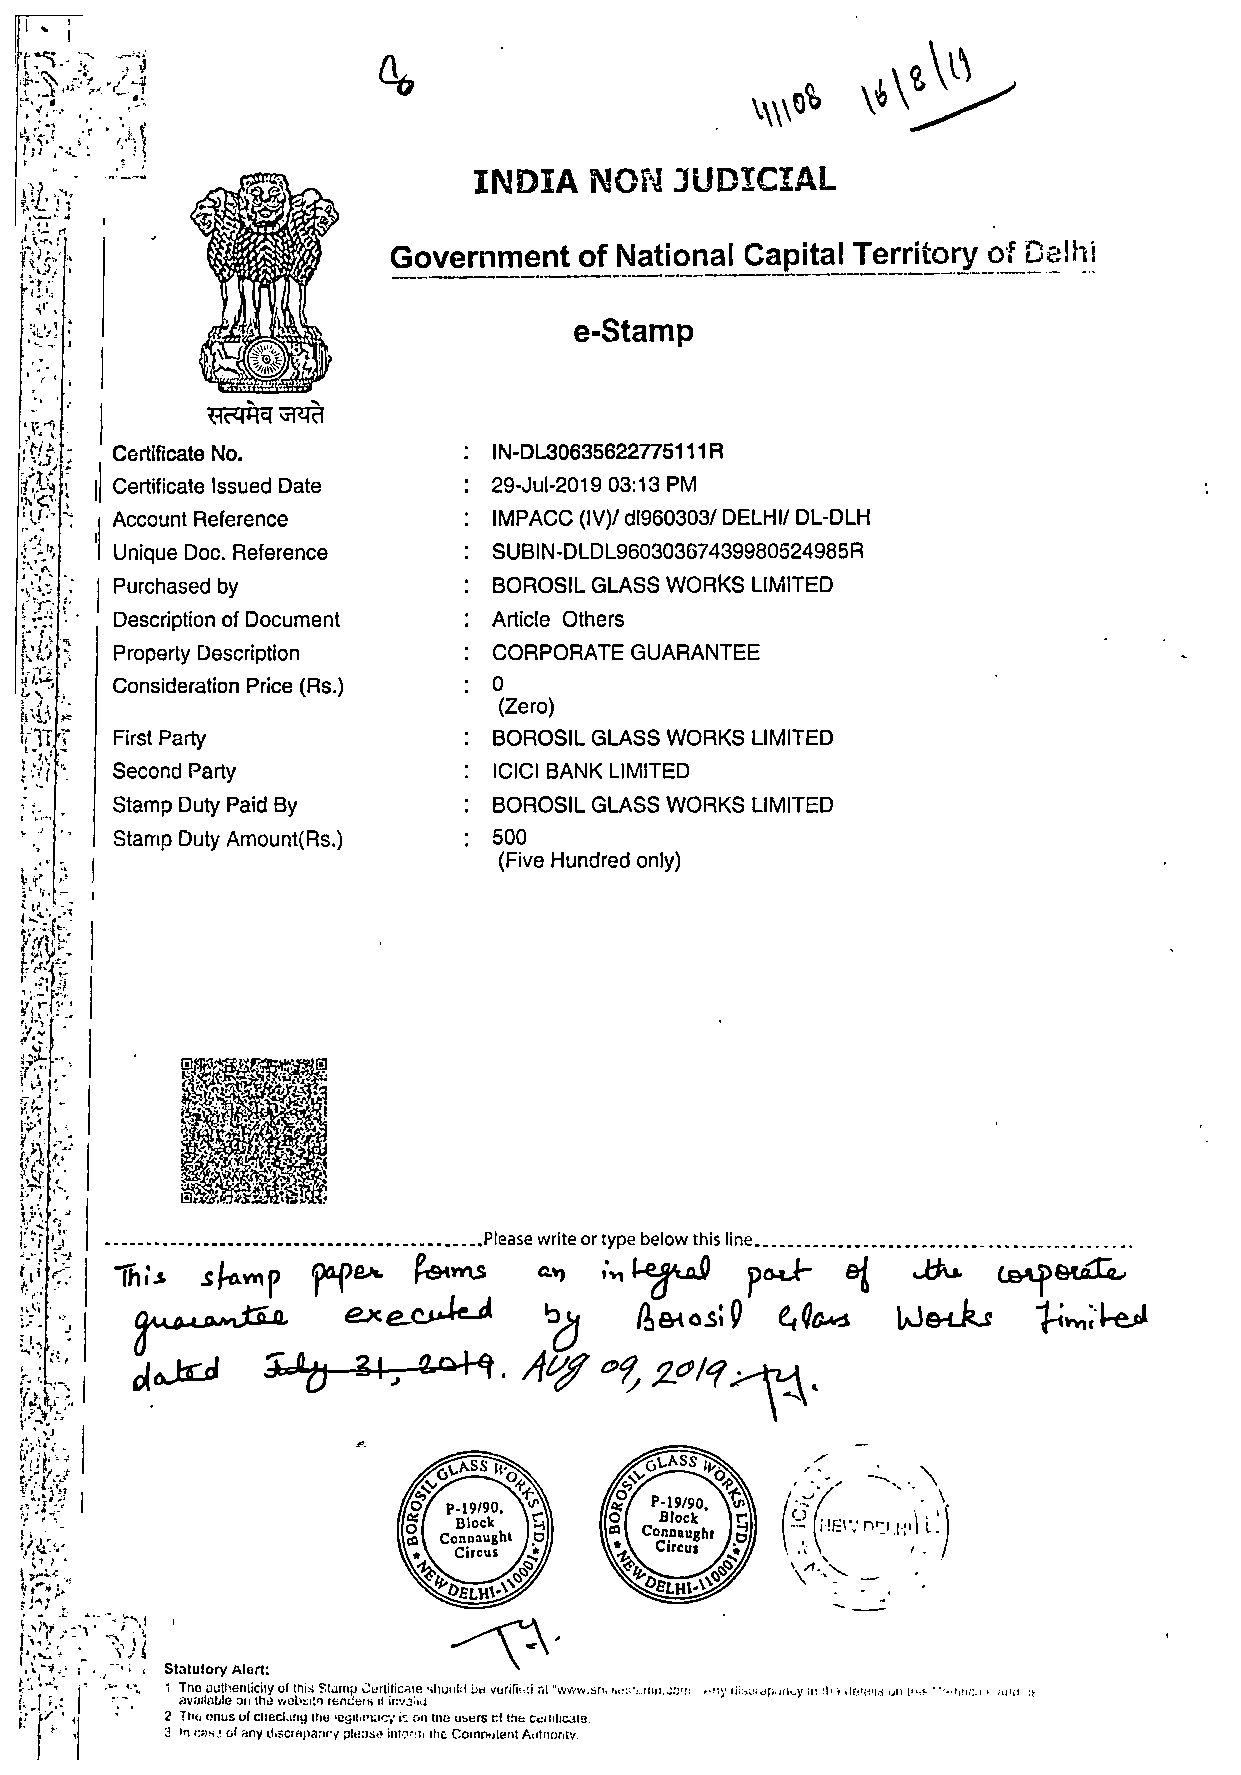 41108 16/8/19
INDIA NON JUDICIAL
Government of National Capital Territory of Delhi
e-Stamp
सत्यमेव जयते
Certificate No. : IN-DL30635622775111R
Certificate Issued Date : 29-Jul-2019 03:13 PM
Account Reference : IMPACC (IV)/ dl960303/ DELHI/ DL-DLH
Unique Doc. Reference : SUBIN-DLDL96030367439980524985R
Purchased by : BOROSIL GLASS WORKS LIMITED
Description of Document : Article Others
Property Description : CORPORATE GUARANTEE
Consideration Price (Rs.) : 0
(Zero)
First Party : BOROSIL GLASS WORKS LIMITED
Second Party : ICICI BANK LIMITED
Stamp Duty Paid By : BOROSIL GLASS WORKS LIMITED
Stamp Duty Amount(Rs.) : 500
(Five Hundred only)
Please write or type below this line
This stamp paper forms an integral part of the corporate
guarantee executed by Borosil Glass Works Limited
dated July 31, 2019. AUG 09, 2019.
BOROSIL GLASS WORKS LTD.
P-19/90,
Block
Connaught
Circus
NEW DELHI-110001
BOROSIL GLASS WORKS LTD.
P-19/90,
Block
Connaught
Circus
NEW DELHI-110001
ICICI
NEW DELHI
Statutory Alert:
1 The authenticity of this Stamp Certificate should be verified at
available on the website renders it invalid
2 The onus of checking the legitimacy is on the users of the certificate.
3 In case of any discrepancy please inform the Competent Authority.